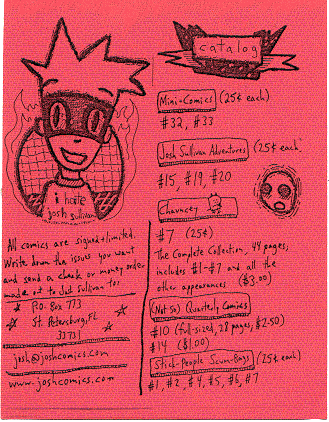 i hate
josh sullivan
All comics are signed + limited.
Write down the issues you want
and send a check or money order
made out to Josh Sullivan to:
P.O. Box 773
St. Petersburg, FL
33731
josh@joshcomics.com
www.joshcomics.com
catalog
Mini-Comics (25¢ each)
#32, #33
Josh Sullivan Adventures (25¢ each)
#15, #19, #20
Chauncey
#7 (25¢)
The Complete Collection, 44 pages,
includes #1-#7 and all the
other appearances ($3.00)
(Not So) Quarterly Comics
#10 (full-sized, 28 pages, $2.50)
#14 ($1.00)
Stick-People Scum-Bags (25¢ each)
#1, #2, #4, #5, #6, #7